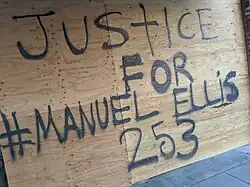 JUSTICE
FOR
#MANUEL ELLIS
253